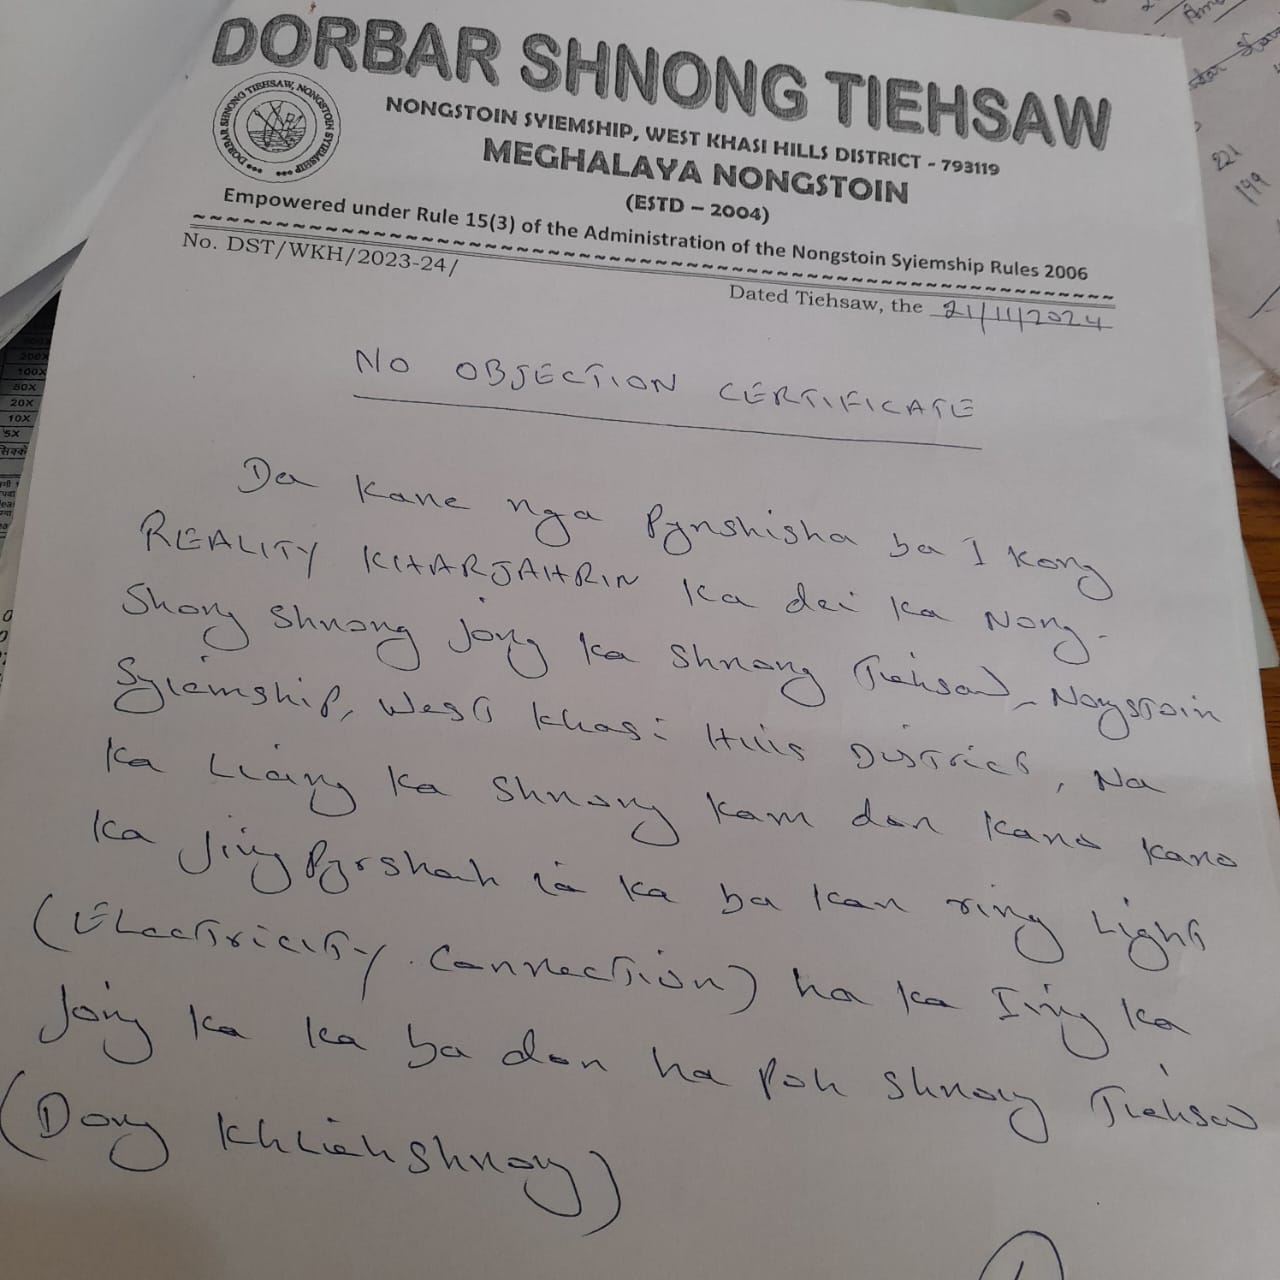 DORBAR SHNONG TIEHSAW
NONGSTOIN SYIEMSHIP, WEST KHASI HILLS DISTRICT - 793119
MEGHALAYA NONGSTOIN
(ESTD – 2004)
Empowered under Rule 15(3) of the Administration of the Nongstoin Syiemship Rules 2006
DORBAR SHNONG TIEHSAW, NONGSTOIN SYIEMSHIP
No. DST/WKH/2023-24/
Dated Tiehsaw, the 21/11/2024
NO OBJECTION CERTIFICATE
Da kane nga Pynshisha ba I Kong
REALITY KHARJAHRIN Ka dei ka Nong-
Shong Shnong jong ka Shnong Tiehsaw, Nongstoin
Syiemship, West Khasi Hills District, Na
Ka Liang ka Shnong kam don kano kano
ka jingpyrshah ia ka ba kan ring Light
(Electricity Connection) ha ka Iing ka
jong ka ka ba don ha poh shnong Tiehsaw
(Dong Khliehshnong)
221
199
200X
100X
50X
20X
10X
5X